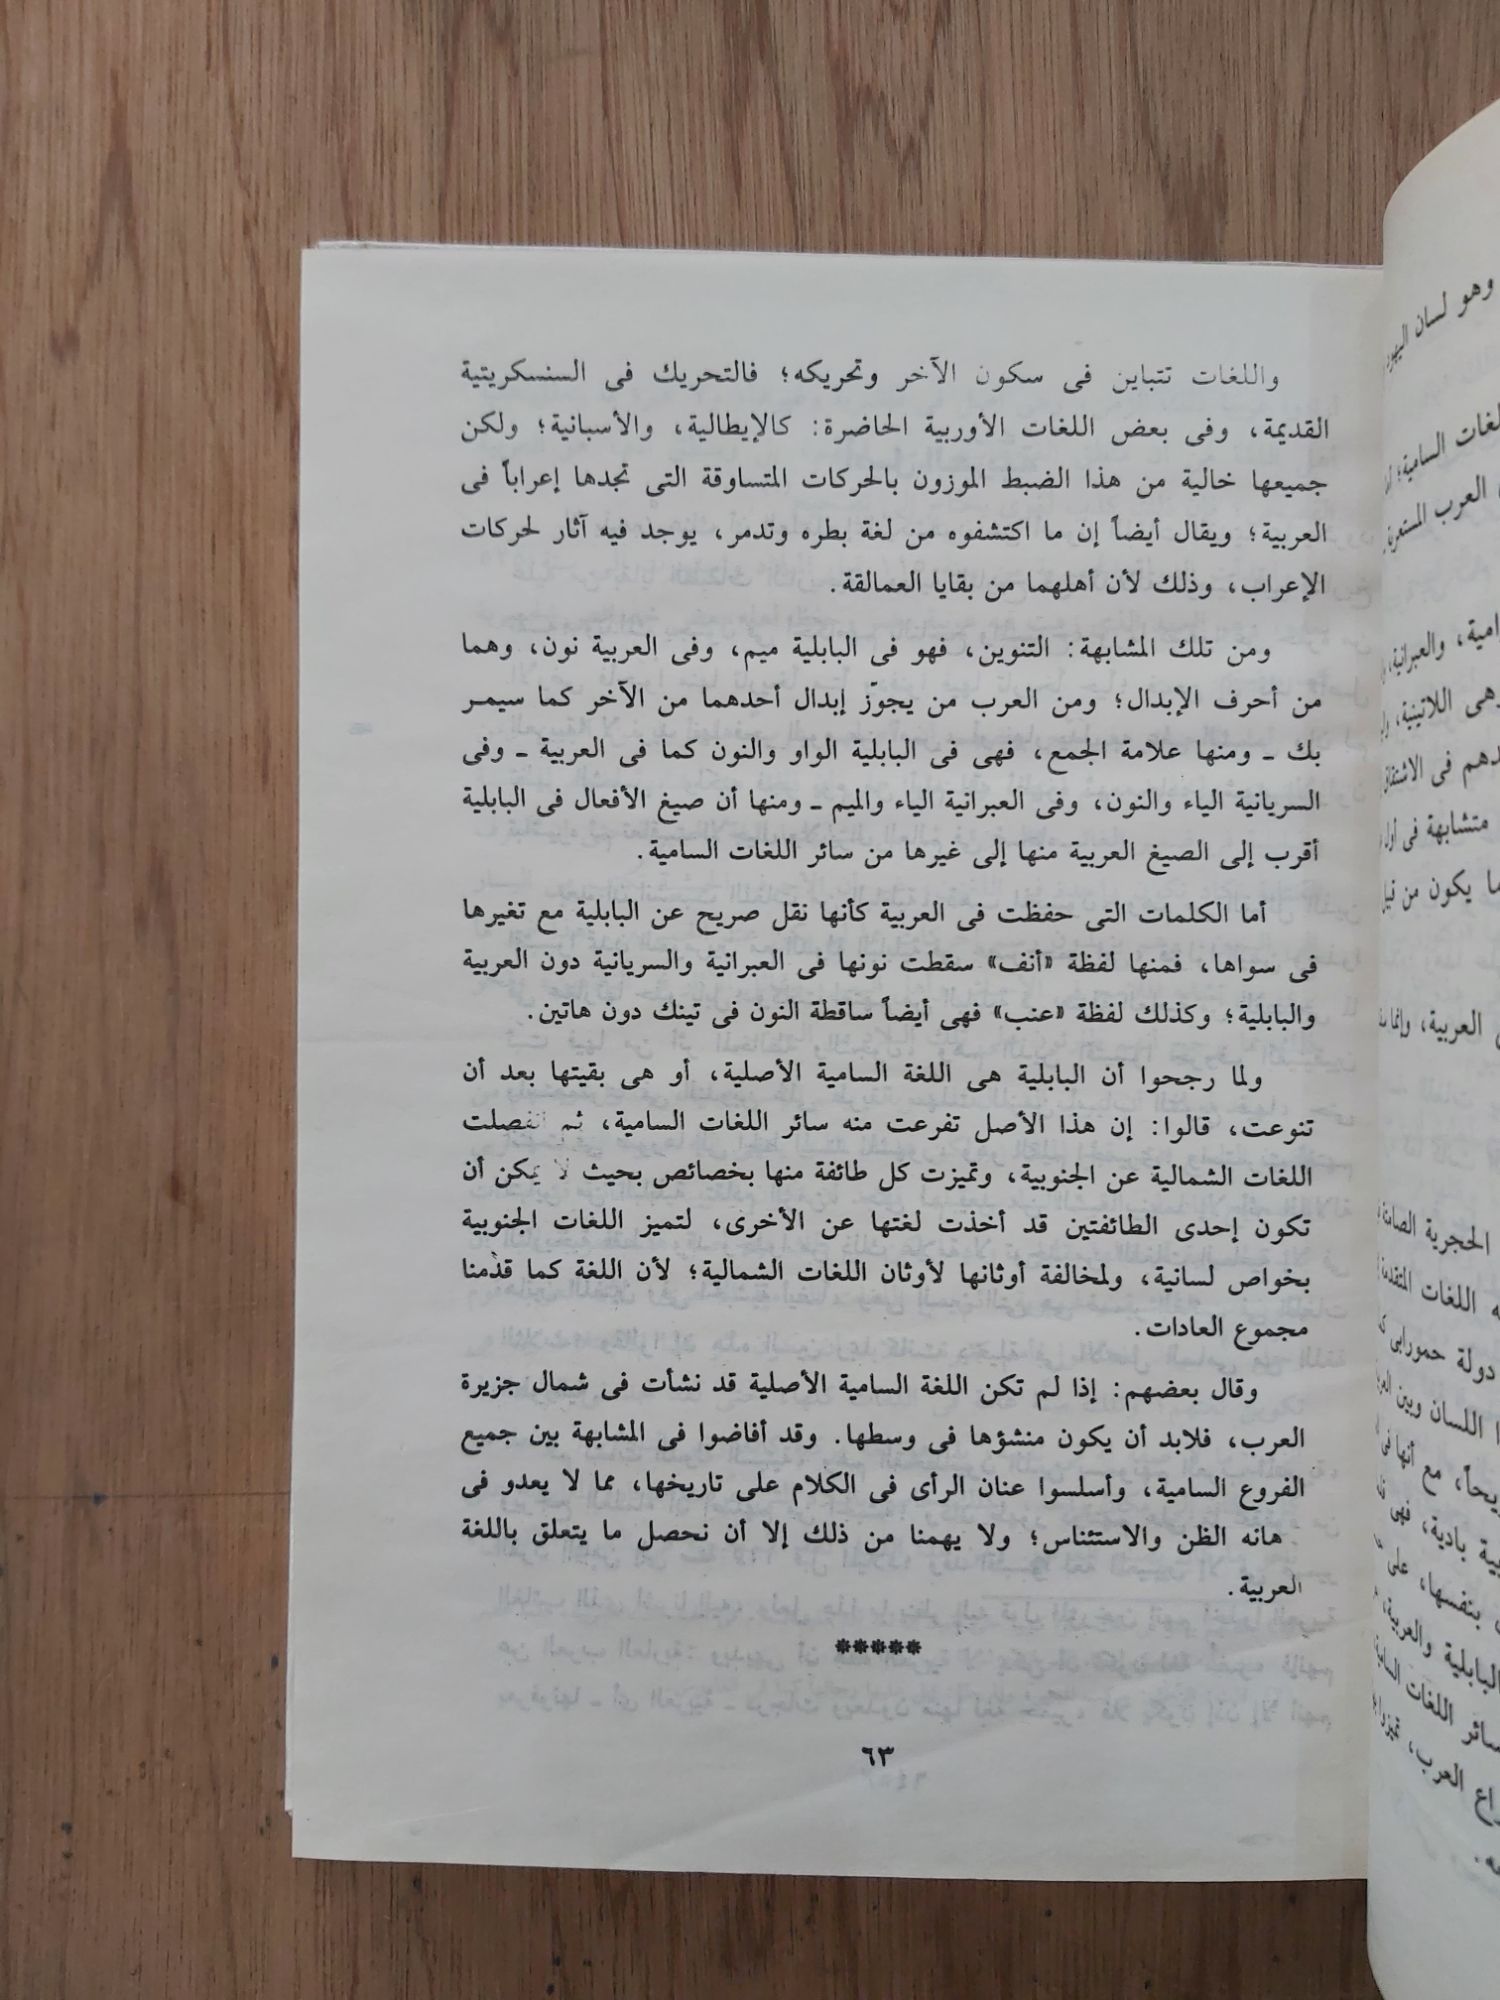 واللغات تتباين فى سكون الآخر وتحريكه؛ فالتحريك فى السنسكريتية
القديمة، وفى بعض اللغات الأوربية الحاضرة: كالإيطالية، والأسبانية؛ ولكن
جميعها خالية من هذا الضبط الموزون بالحركات المتساوقة التى تجدها إعراباً فى
العربية؛ ويقال أيضاً إن ما اكتشفوه من لغة بطره وتدمر، يوجد فيه آثار لحركات
الإعراب، وذلك لأن أهلهما من بقايا العمالقة.
ومن تلك المشابهة: التنوين، فهو فى البابلية ميم، وفى العربية نون، وهما
من أحرف الإبدال؛ ومن العرب من يجوّز إبدال أحدهما من الآخر كما سيمر
بك ـ ومنها علامة الجمع، فهى فى البابلية الواو والنون كما فى العربية ـ وفى
السريانية الياء والنون، وفى العبرانية الياء والميم ـ ومنها أن صيغ الأفعال فى البابلية
أقرب إلى الصيغ العربية منها إلى غيرها من سائر اللغات السامية.
أما الكلمات التى حفظت فى العربية كأنها نقل صريح عن البابلية مع تغيرها
فى سواها، فمنها لفظة «أنف» سقطت نونها فى العبرانية والسريانية دون العربية
والبابلية؛ وكذلك لفظة «عنب» فهى أيضاً ساقطة النون فى تينك دون هاتين.
ولما رجحوا أن البابلية هى اللغة السامية الأصلية، أو هى بقيتها بعد أن
تنوعت، قالوا: إن هذا الأصل تفرعت منه سائر اللغات السامية، ثم انفصلت
اللغات الشمالية عن الجنوبية، وتميزت كل طائفة منها بخصائص بحيث لا يمكن أن
تكون إحدى الطائفتين قد أخذت لغتها عن الأخرى، لتميز اللغات الجنوبية
بخواص لسانية، ولمخالفة أوثانها لأوثان اللغات الشمالية؛ لأن اللغة كما قدّمنا
مجموع العادات.
وقال بعضهم: إذا لم تكن اللغة السامية الأصلية قد نشأت فى شمال جزيرة
العرب، فلابد أن يكون منشؤها فى وسطها. وقد أفاضوا فى المشابهة بين جميع
الفروع السامية، وأسلسوا عنان الرأى فى الكلام على تاريخها، مما لا يعدو فى
هانه الظن والاستئناس؛ ولا يهمنا من ذلك إلا أن نحصل ما يتعلق باللغة
العربية.
*****
٦٣
وهو لسان
السامية؛
العرب المستعربة
والعبرانية،
وهى اللاتينية،
فى الاشتقاق
متشابهة فى أول
يكون من قبل
العربية، وإنما
الحجرية
اللغات المتقدمة
دولة حمورابى
اللسان وبين
مع أنها فى
بادية، فهى
بنفسها، على
البابلية والعربية،
سائر اللغات
العرب،